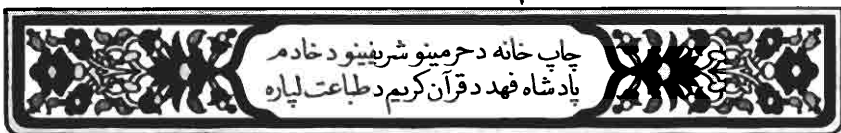 چاپ خانه د حرمینو شریفینو د خادم
پادشاه فهد د قرآن کریم د طباعت لپاره